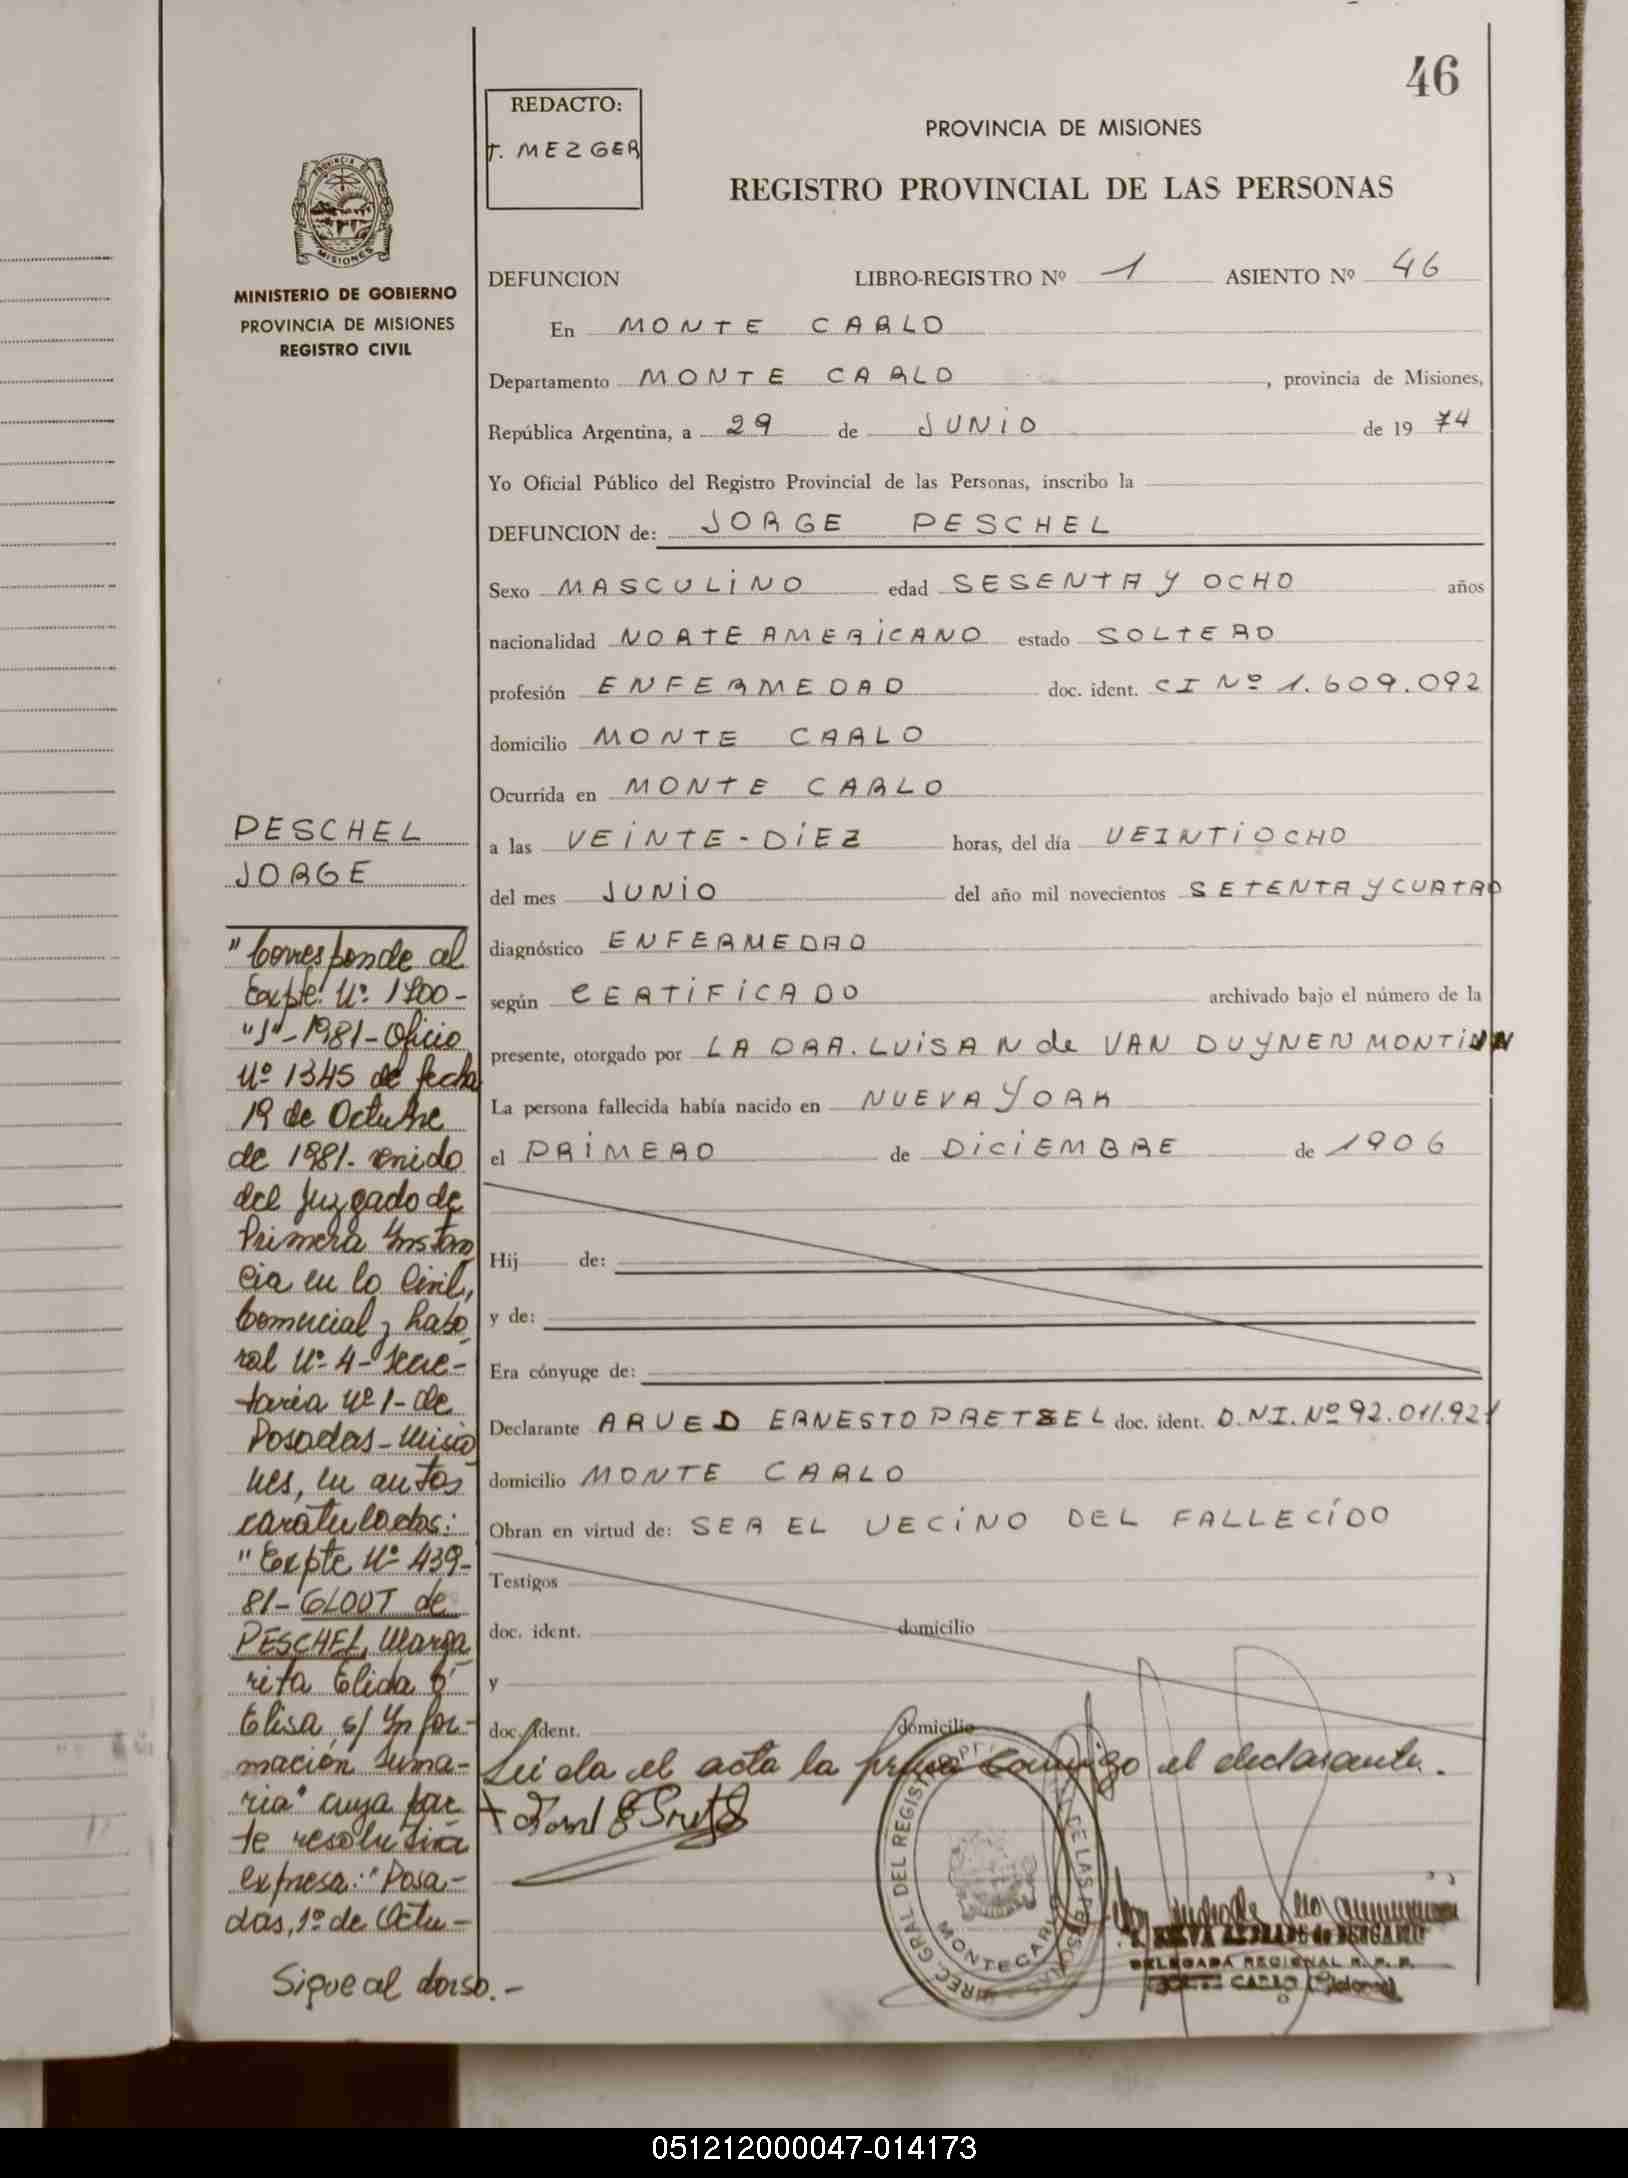 46
REDACTO:
T. MEZGER
PROVINCIA DE MISIONES
REGISTRO PROVINCIAL DE LAS PERSONAS
PROVINCIA DE
MISIONES
MINISTERIO DE GOBIERNO
PROVINCIA DE MISIONES
REGISTRO CIVIL
DEFUNCION LIBRO-REGISTRO Nº 1 ASIENTO Nº 46
En MONTE CARLO
Departamento MONTE CARLO, provincia de Misiones,
República Argentina, a 29 de JUNIO de 1974
Yo Oficial Público del Registro Provincial de las Personas, inscribo la
DEFUNCION de: JORGE PESCHEL
Sexo MASCULINO edad SESENTA Y OCHO años
nacionalidad NORTEAMERICANO estado SOLTERO
profesión ENFERMEDAD doc. ident. CI Nº 1.609.092
domicilio MONTE CARLO
Ocurrida en MONTE CARLO
a las VEINTE-DIEZ horas, del día VEINTIOCHO
del mes JUNIO del año mil novecientos SETENTA Y CUATRO
diagnóstico ENFERMEDAD
según CERTIFICADO archivado bajo el número de la
presente, otorgado por LA DRA. LUISA N de VAN DUYNEN MONTIJN
La persona fallecida había nacido en NUEVA YORK
el PRIMERO de DICIEMBRE de 1906
Hij de:
y de:
Era cónyuge de:
Declarante ARUED ERNESTO PRETSEL doc. ident. D.NI. Nº 92.011.921
domicilio MONTE CARLO
Obran en virtud de: SER EL VECINO DEL FALLECIDO
Testigos
doc. ident. domicilio
y
doc. ident. domicilio
Leida el acta la firma conmigo el declarante.
DIREC. GRAL DEL REGISTRO DE LAS PERSONAS
MONTECARLO
DELEGADA REGIONAL R. P. P.
CARLO (Misiones)
PESCHEL
JORGE
"Corresponde al
Expte. Nº 1700-
"J"-1981-Oficio
Nº 1345 de fecha
19 de Octubre
de 1981. venido
del Juzgado de
Primera Instan
cia en lo Civil,
Comercial y Labo
ral Nº 4-Secre-
taria Nº 1-de
Posadas-Misio
nes, en autos
caratulados:
"Expte Nº 439-
81-GLOOT de
PESCHEL, Marga
rita Elida ó
Elisa, s/ Infor-
mación suma-
ria" cuya par
te resolutiva
expresa: "Posa-
das, 1º de Octu-
Sigue al dorso.-
051212000047-014173